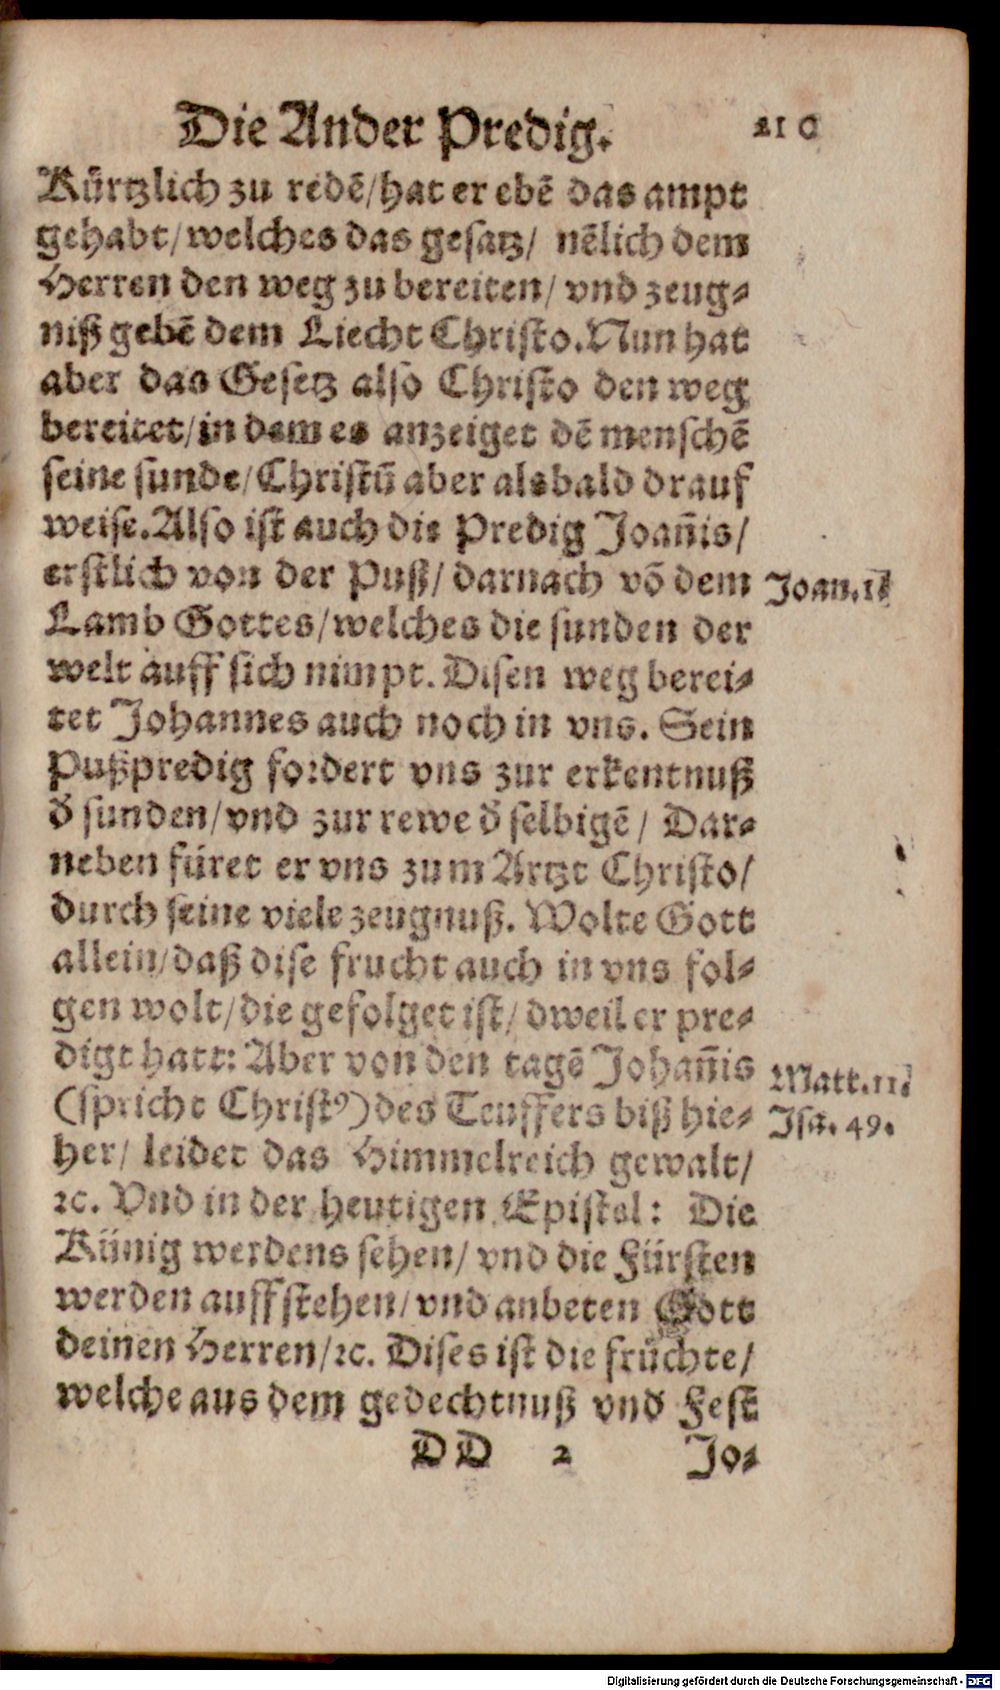 Die Ander Predig. 210
Kürtzlich zu redẽ/hat er ebẽ das ampt
gehabt/welches das gesatz/ nẽlich dem
Herren den weg zu bereiten/ vnd zeug-
niß gebẽ dem Liecht Christo. Nun hat
aber das Gesetz also Christo den weg
bereitet/in dem es anzeiget dẽ menschẽ
seine sunde/Christũ aber alsbald drauf
weise. Also ist auch die Predig Joañis/
erstlich von der Puß/ darnach võ dem
Joan. 1.
Lamb Gottes/welches die sunden der
welt auff sich nimpt. Disen weg berei-
tet Johannes auch noch in vns. Sein
Pußpredig fordert vns zur erkentnuß
d̃ sunden/vnd zur rewe d̃ selbigẽ/ Dar-
neben füret er vns zum Artzt Christo/
durch seine viele zeugnuß. Wolte Gott
allein/daß dise frucht auch in vns fol-
gen wolt/die gefolget ist/ dweil er pre-
digt hatt: Aber von den tagẽ Johañis
Matt. 11.
(spricht Christꝰ) des Teuffers biß hie-
Isa. 49.
her/ leidet das Himmelreich gewalt/
ꝛc. Vnd in der heutigen Epistel: Die
Künig werdens sehen/ vnd die Fürsten
werden auffstehen/vnd anbeten Gott
deinen Herren/ꝛc. Dises ist die früchte/
welche aus dem gedechtnuß vnd Fest
DD 2 Jo-
Digitalisierung gefördert durch die Deutsche Forschungsgemeinschaft - DFG